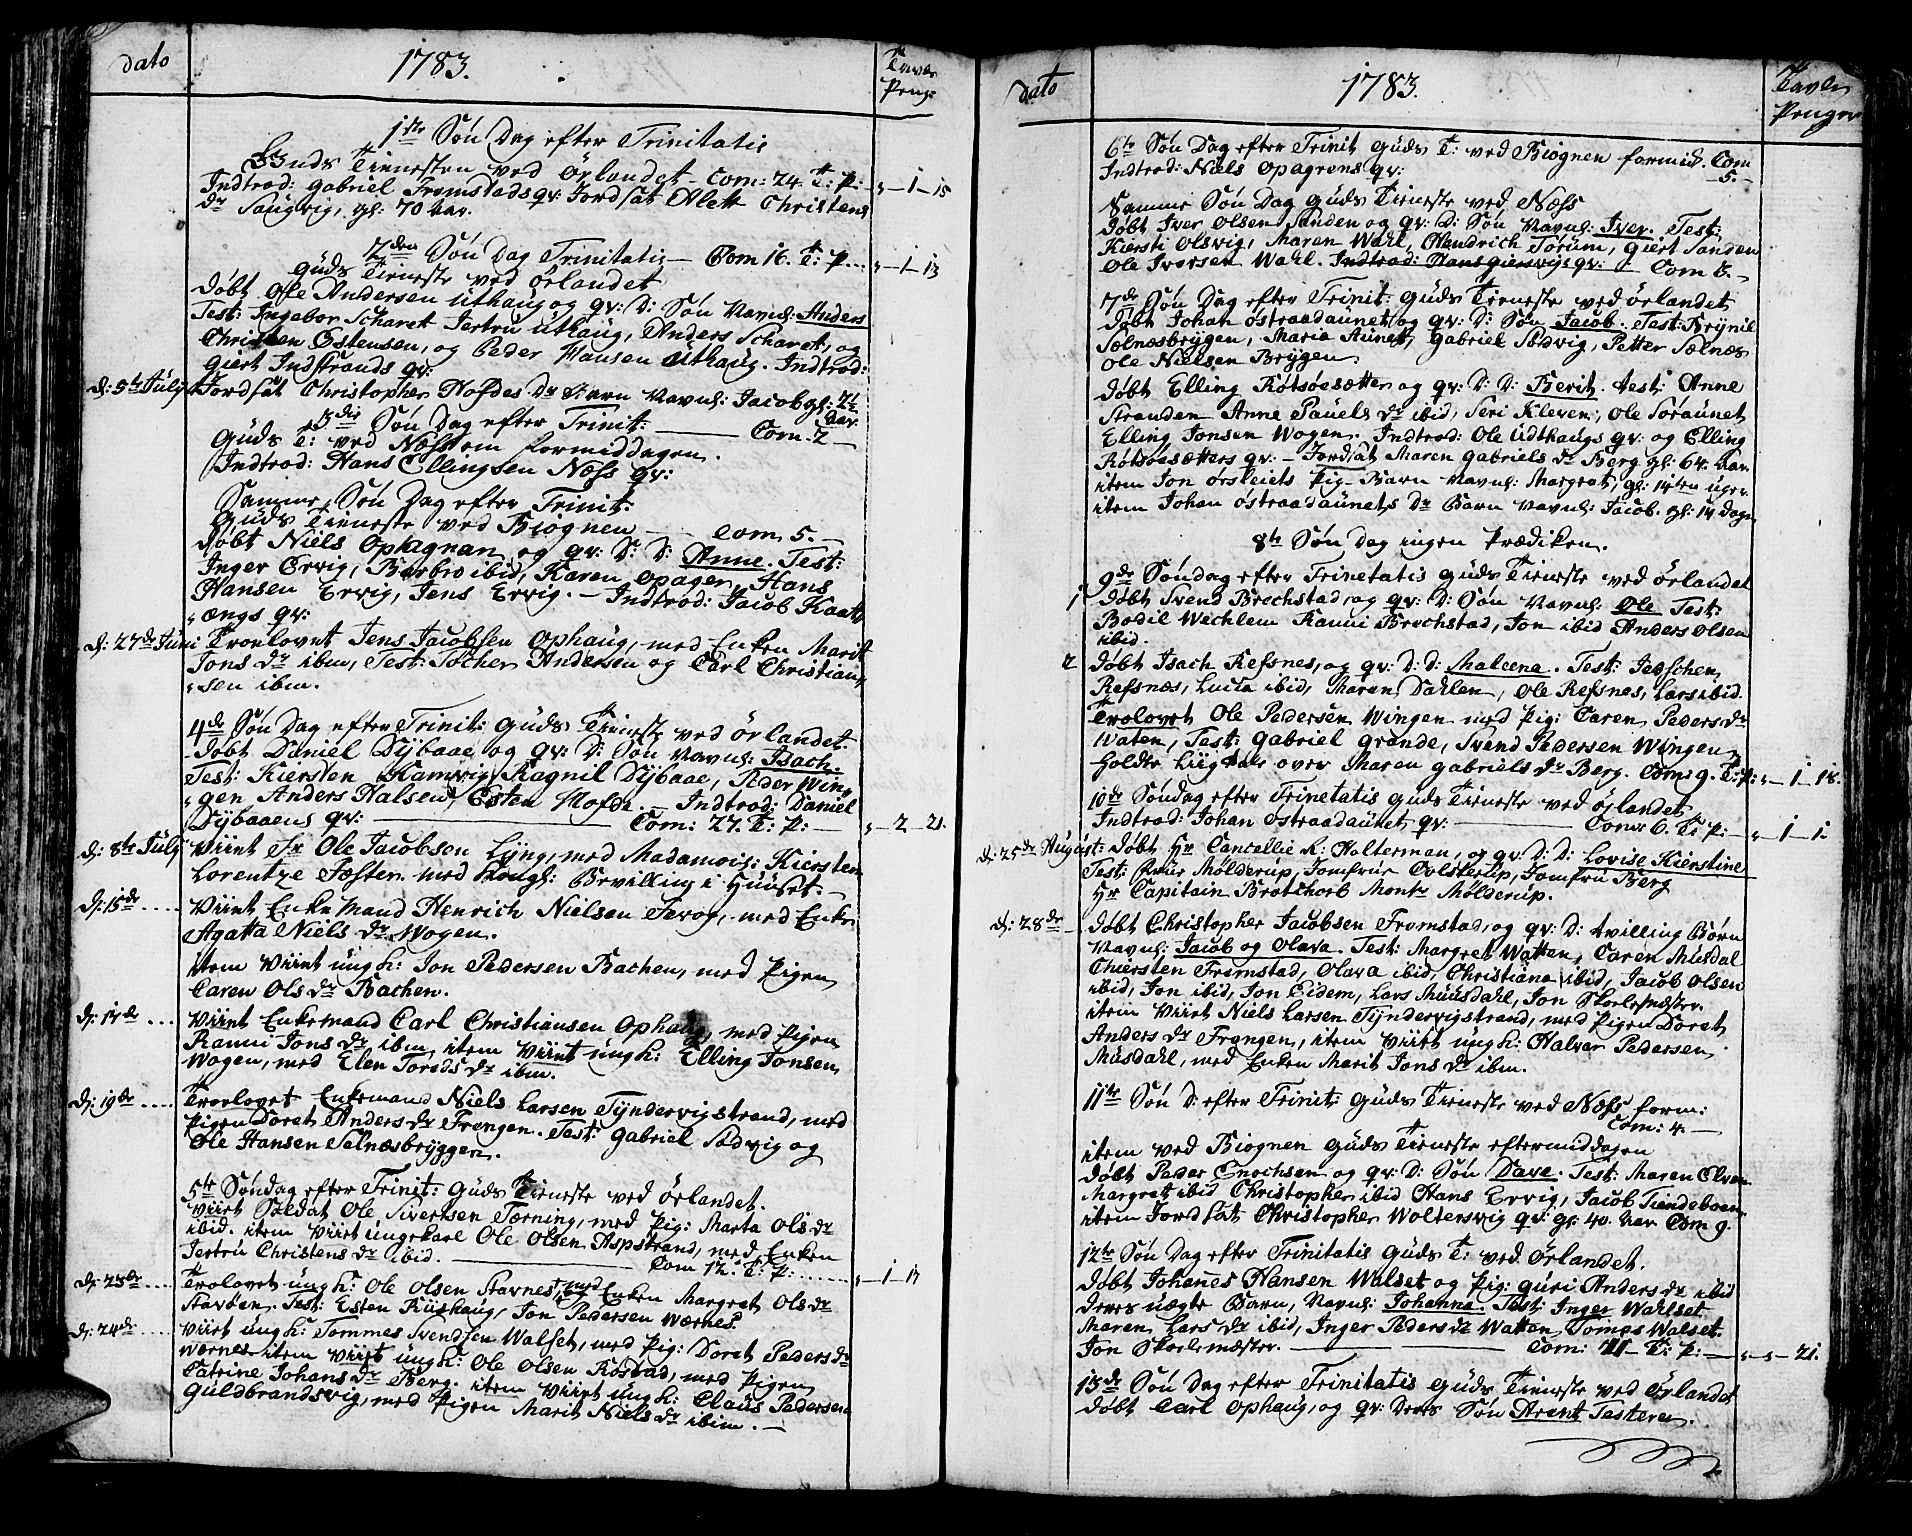 Dato 1783. Tavle Peng:
1te Søn Dag efter Trinitatis
Guds Tienesten ved Ørlandet Com: 24. T: P: „—1—15
Indtrod: Gabriel Fromstads qv: Jordfat Alett Christens
dr Saugvig, gl: 70 Aar.
2den Søn Dag Trinitatis — Com 16. T: P. „—1—13
Guds Tieneste ved Ørlandet
Døbt Ole Andersen Uthaug og qv: D: Søn Navnl: Anders
Test: Ingebor Scharet Jertru Uthaug, Anders Scharet, og
Christen Estensen, og Peder Hansen Uthaug. Indtrod:
Giert Indstrands qv:
d: 5te Julij Jordfat Christopher Hofdes Dr Barn Navnl: Jacob gl: 2½
Aar.
3die Søn Dag efter Trinit: — Com: 2 —
Guds T: ved Næss om formiddagen.
Indtrod: Hans Ellingsen Næss qv:
Samme Søn Dag efter Trinit:
Guds Tieneste ved Biognen — Com 5. —
Døbt Niels Ophagnan og qv: D: D: Anne. Test:
Inger Ervig, Barbro ibid, Karen Opager, Hans
Hansen Ervig, Jens Ervig. — Indtrod: Jacob Kaatt
„ængs qv:
d: 27de Juni Trolovet Jens Jacobsen Ophaug, med Enken Marit
Jons dr ibm, Test: Tocher Andersen og Carl Christian„
„sen ibm.
4de Søn Dag efter Trinit: Guds Tieneste ved Ørlandet.
Døbt Daniel Dybaae og qv: D: Søn Navnl: Isach.
Test: Kiersten Hamvig, Ragnil Dybaae, Peder Win„
„gen Anders Halsen, Esten Hofde. — Indtrod: Daniel
Dybaaens qv: — Com: 27. T: P: — „—2—21.
d: 8te Julij Viint Sr Ole Jacobsen Lyng, med Madamois: Kiersten
Lorentze Fæsten med Kongl: Bevilling i Huuset. —
d: 15de Viint Enke Mand Henrich Nielsen Ferog, med Enke
Agatta Niels dr Wogen.
item Viint ungk: Jon Pedersen Bachen, med Pigen
Caren Ols dr Bachen.
d: 17de Viint Enkemand Carl Christiansen Ophaug, med Pigen
Ranni Jons dr ibm, item Viint ungk: Elling Jonsen
Wogen, med Elen Tords dr ibm.
d: 19de Trolovet Enkemand Niels Larsen Tyndervigstrand, med
Pigen Doret Anders dr Frongen. Test: Gabriel Sødvig og
Ole Hansen Selnæsbryggen.
5te Søndag efter Trinit: Guds Tieneste ved Ørlandet.
Viint Soldat Ole Sivertsen Tørning, med Pig: Marta Ols dr
ibid. item Viint ungekarl Ole Olsen Aspstrand, med Enken
Jertru Christens dr ibid. — Com 12. T: P: „—1—17
d: 23de Trolovet ungk: Ole Olsen Stavnes, med Enken Margret Ols dr
Stavøen. Test: Esten Kiishaug, Jon Pedersen Wærnes.
d: 24de Viint ungk: Tommes Svendsen Walset, med Pig: Doret Peders dr
Wærnes item Viint ungk: Ole Olsen Rostad, med Pigen
Catrine Johans dr Berg. item Viint ungk: Claus Pedersen
Guldbrandsvig, med Pigen Marit Niels dr ibm. —
Dato 1783. Tavle Penger
6te Søn Dag efter Trinit Guds T: ved Biognen formid. Com
Indtrod: Niels Opagrens qv: 5. —
Samme Søn Dag Guds Tieneste ved Næss
Døbt Iver Olsen Sanden og qv: D: Søn Navnl: Iver. Test:
Kiersti Olsvig, Maren Wahl, Hendrich Torum, Giert Sanden
Ole Iversen Wahl. Indtrod: Hans Giersvigs qv: — Com 3. —
7de Søn Dag efter Trinit: Guds Tieneste ved Ørlandet
Døbt Johan Østraadaunet og qv: D: Søn Jacob. Test: Brynil
Sælnesbryggen, Maria Aunet, Gabriel Sødvig, Petter Sælnæs
Ole Nielsen Bryggen
Døbt Elling Røtsøesætter og qv: D: D: Berit. Test: Anne
Stranden Anne Pauels dr ibid, Seri Kleven, Ole Soraunet
Elling Jonsen Wogen. Indtrod: Ole Udthaugs qv: og Elling
Røtsøesætters qv: — Jordfat Maren Gabriels dr Berg gl: 64. Aar.
item Jon Orsleiets Pig-Barn Navnl: Margret, gl: 14ten uger
item Johan Østraadaunets Dr Barn Navnl: Jacob. gl: 14 Dage
8te Søn Dag ingen Prædiken.
9de Søndag efter Trinetatis Guds Tieneste ved Ørlandet
1 Døbt Svend Brechstad, og qv: D: Søn Navnl: Ole Test:
Bodil Wechlem Ranni Brechstad, Jon ibid Anders Olsen
ibid.
2 Døbt Isach Refsnes, og qv: D: D: Maleena. Test: Jesschen
Refsnæs, Lucia ibid, Maren Dahlen, Ole Refsnes, Lars ibid.
Trolovet Ole Pedersen Wingen med Pig: Caren Peders dr
Waten, Test: Gabriel Grande, Svend Pedersen Wingen
Holdte Liigtale over Maren Gabriels dr Berg. Com: 9. T: P: „—1—18.
10de Søndag efter Trinetatis Guds Tieneste ved Ørlandet
Indtrod: Johan Østraadaunet qv: — Com: 6. T: P: — „—1—1.
d: 25de August: Døbt Hr Cancellie R: Holterman, og qv: D: D: Lovise Kierstine
Test: Frue Mølderup, Jomfrue Ovlsterup, Jomfru Berg
Hr Capitain Brochhorb Montr Mølderup.
d: 28de Døbt Christopher Jacobsen Fromstad, og qv: D: tvilling Børn
Navnl: Jacob og Olava. Test: Margret Watten, Caren Musdal
Chiersten Fromstad, Olava ibid, Christiana ibid, Jacob Olsen
ibid, Jon ibid, Jon Eidem, Lars Muusdahl, Jon Skolemæster.
item Viint Niels Larsen Tyndervigstrand, med Pigen Doret
Anders dr Frongen, item Viint ungk: Halvar Pedersen
Musdahl, med Enken Marit Jons dr ibm.
11te Søn D: efter Trinit: Guds Tieneste ved Næss form:
Com: 4. —
item ved Biognen Guds Tieneste eftermiddagen
Døbt Peder Enochsen og qv: D: Søn Dave. Test: Maren Elven
Margret ibid Christopher ibid Hans Ervig, Jacob Tiendeboen
item Jordfat Christopher Woltersvig qv: gl: 40. Aar Com 9.
12te Søn Dag efter Trinitatis Guds T: ved Ørlandet.
Døbt Johannes Hansen Walset og Pig: Guri Anders dr ibid
Deres uægte Barn, Navnl: Johanna. Test: Inger Wahlset
Maren Lars dr ibid, Inger Peders dr Watten, Tomes Walset.
Jon Skolemæster. — Com: 21 T: P: — „—„—21.
13de Søn Dag efter Trinitatis Guds Tieneste ved Ørlandet
Døbt Carl Ophaug, og qv: Deres Søn Arent Testeren.